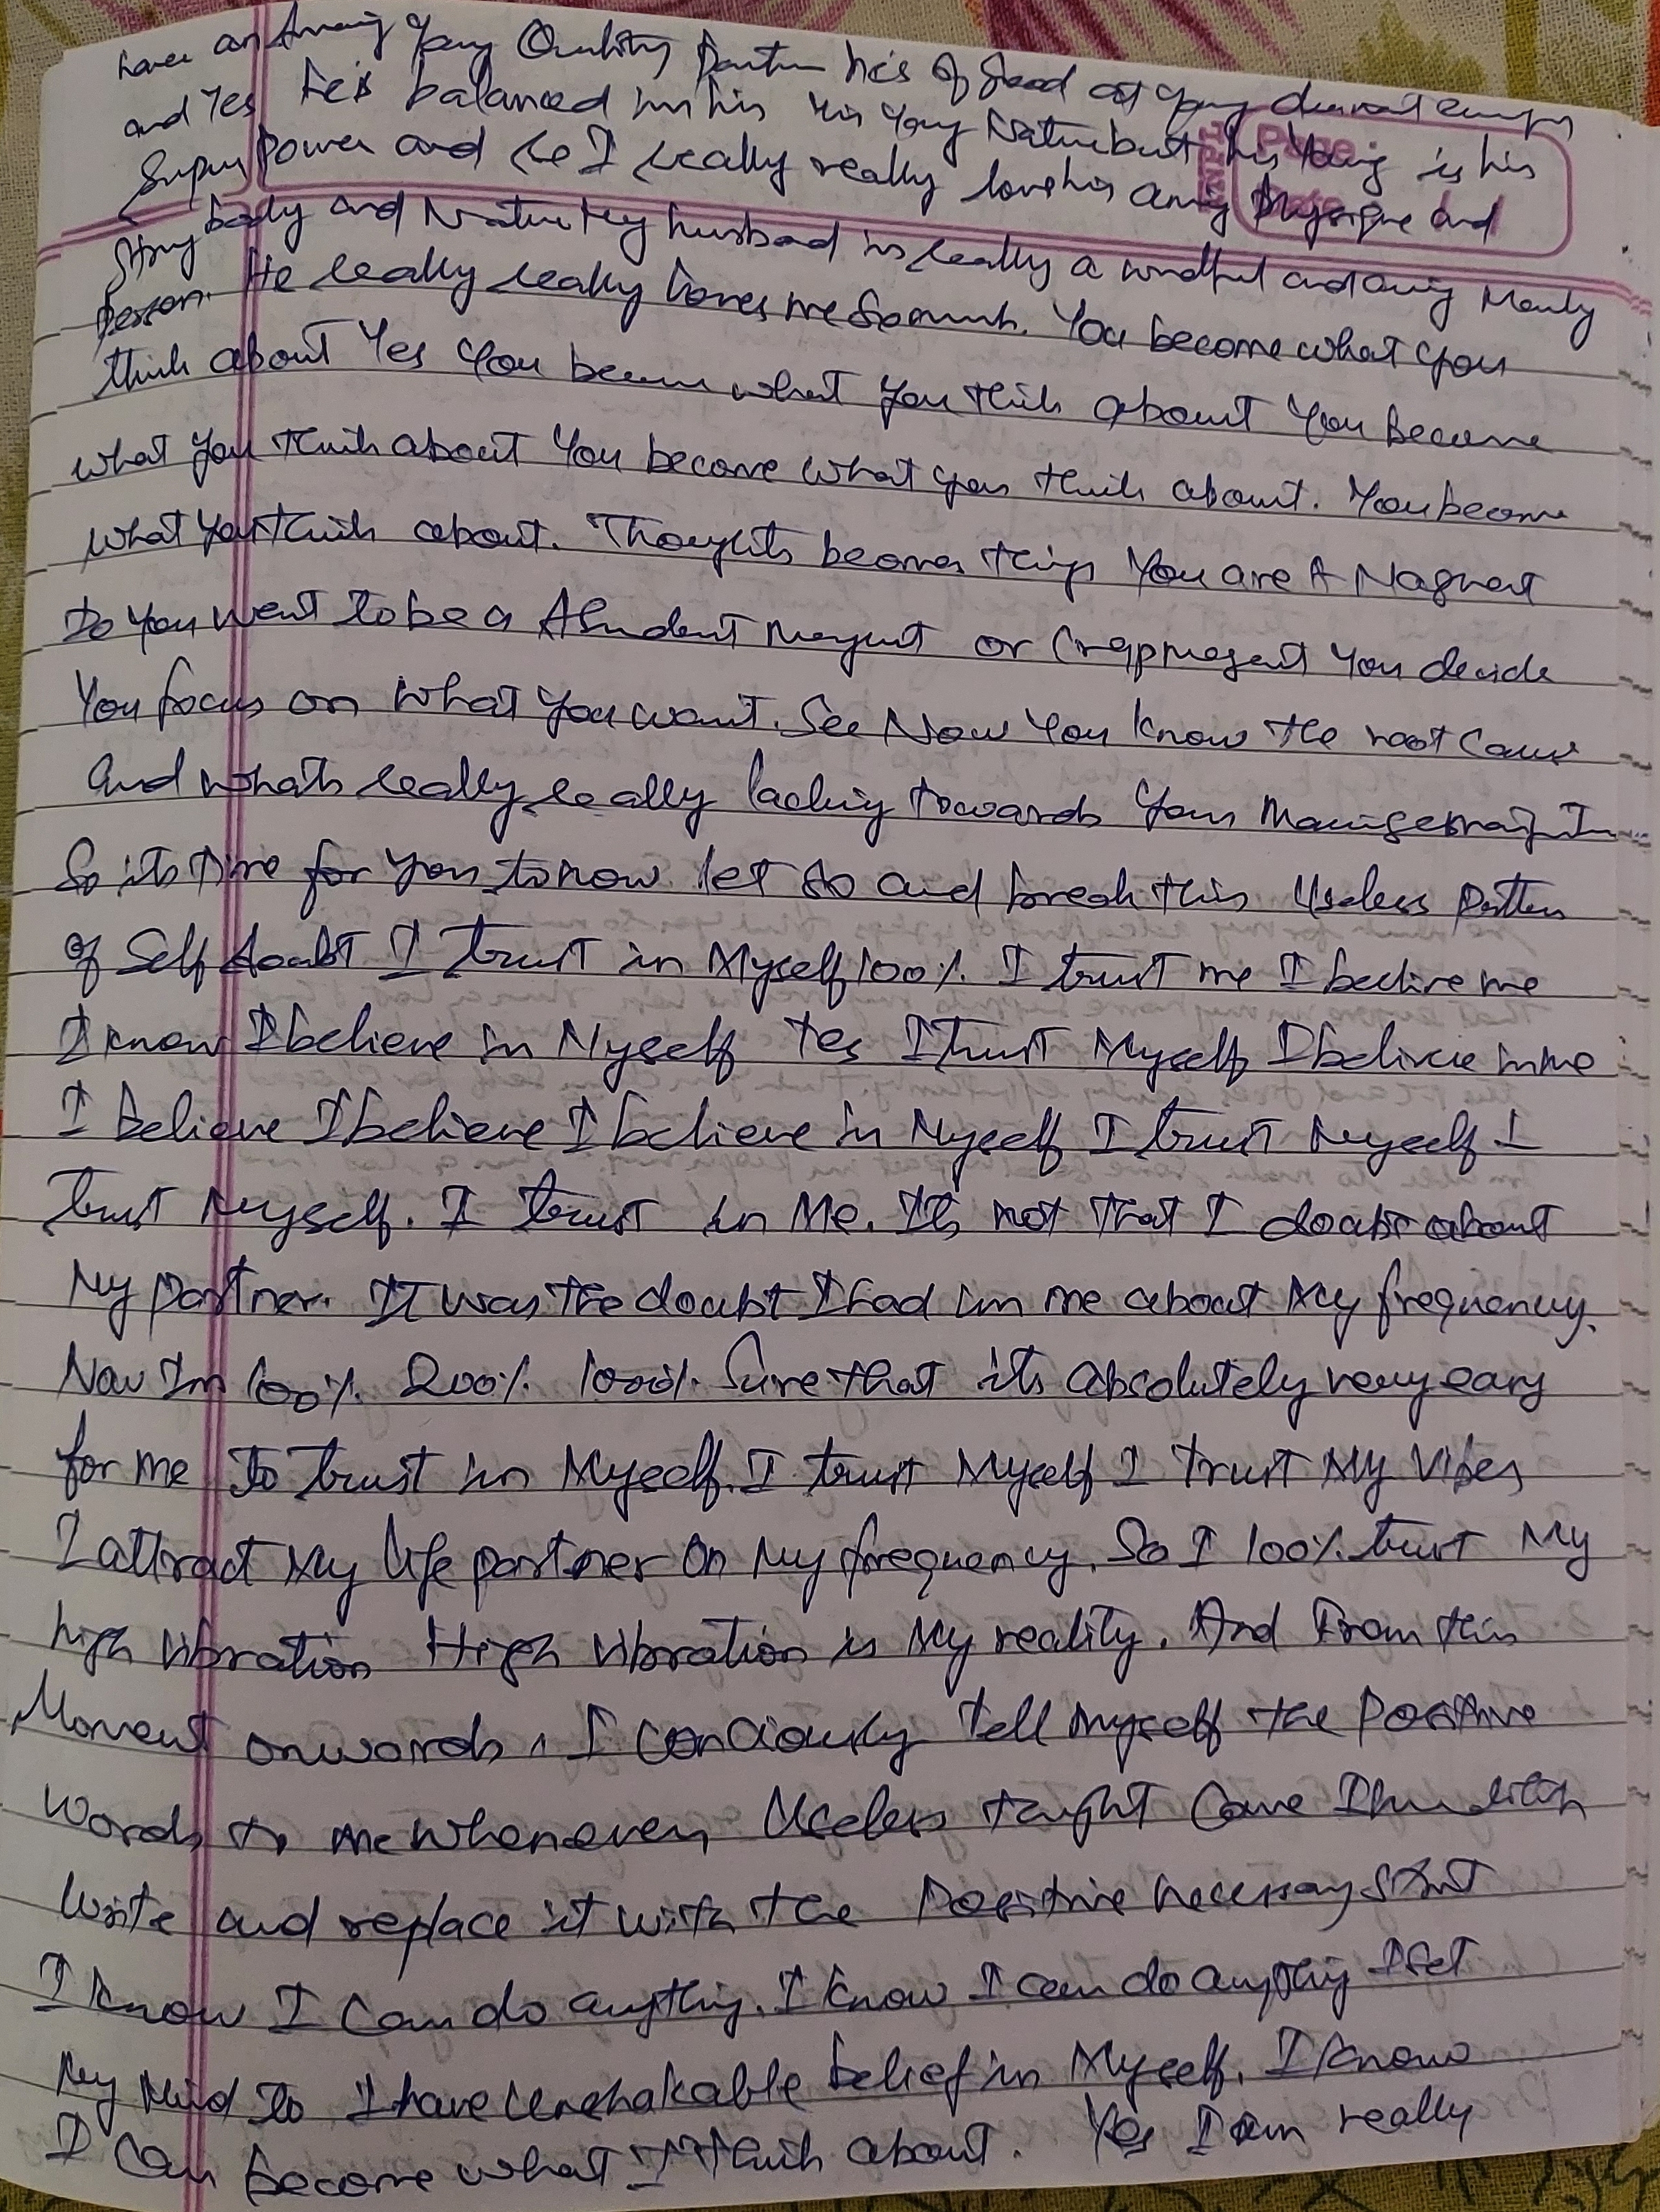 have an Amazing Yang Quality Partner he's of good at Yang
and Yes he's balanced in his Yang Nature but his Yang is his
Super Power and I really really love his Physique and
Strong body and Nature My husband is really a and Manly
Person. He really really loves me So much. You become what you
think about Yes You become what You think about You Become
what You think about You become what you think about. You become
what You think about. Thoughts becomes things You are A Magnet
Do You want to be a Abundent Magnet or Crapmagent You decide
You focus on what You want. See Now You know the root cause
And whats really really lacking towards Your
So its time for you to now let go and break this Useless Pattern
of Self doubt I trust in Myself 100%. I trust me I beelive me
I know I believe in Myself Yes I trust Myself I belivie in me
I believe I believe I believe in Myself I trust Myself I
trust Myself. I trust in Me. Its not that I doubt about
My partner. It was the doubt I had in me about My frequency.
Now Im 100%. 200%. 1000%. Sure that its absolutely very easy
for me To trust in Myself. I trust Myself I trust My Vibes
I attract My life partner On My frequency. So I 100%. trust My
high vibration High vibration is My reality. And From this
Moment onwards, I conciously tell Myself the Positive
words to me whenever Useless Come
write and replace it with the Positive necessary
I know I Can do anything. I know I can do anything I set
My Mind to I have Unshakable belief in Myself. I know
I Can become what I Think about. Yes I am really